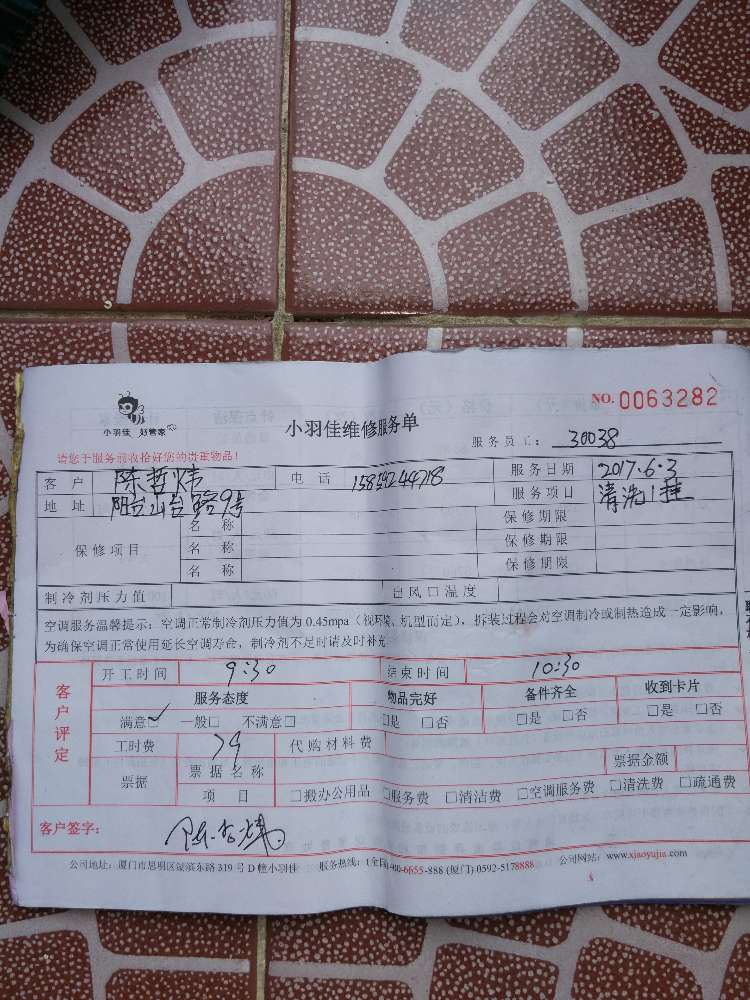 NO. 0063282
小羽佳 好管家
小羽佳维修服务单
服务员工： 30038
请您于服务前收拾好您的贵重物品！
客户 陈哲炜 电话 服务日期 2017.6.3
地址 阳台山台路9号 服务项目 清洗1挂
保修项目 名称 保修期限
名称 保修期限
名称 保修期限
制冷剂压力值 出风口温度
空调服务温馨提示：空调正常制冷剂压力值为0.45mpa（视环境、机型而定），拆装过程会对空调制冷或制热造成一定影响，
为确保空调正常使用延长空调寿命，制冷剂不足时请及时补充
开工时间 9:30 结束时间 10:30
客户评定
服务态度 物品完好 备件齐全 收到卡片
满意☑ 一般□ 不满意□ □是 □否 □是 □否 □是 □否
工时费 79 代购材料费
票据 票据名称 票据金额
项目 □搬办公用品 □服务费 □清洁费 □空调服务费 □清洗费 □疏通费
客户签字：
公司地址：厦门市思明区湖滨东路319号D幢小羽佳 服务热线：(全国)400-6655-888 (厦门)0592-5178888 公司网站：www.xiaoyujia.com